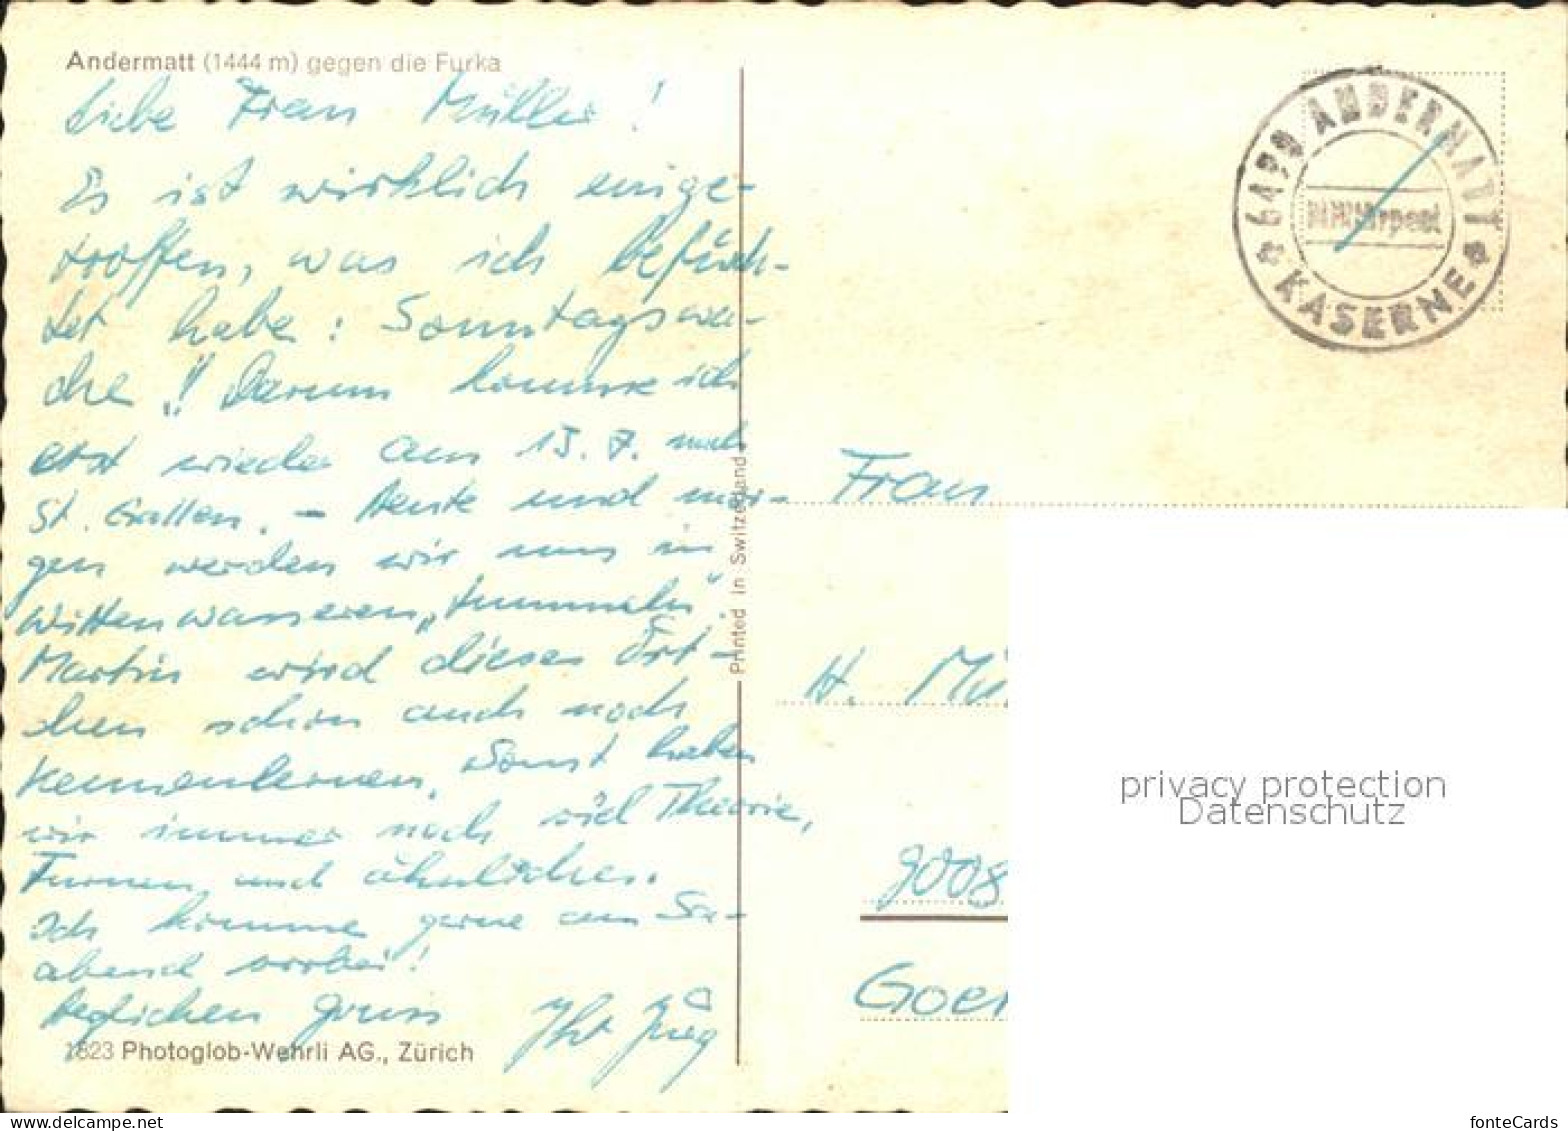 Andermatt (1444 m) gegen die Furka
Liebe Frau Müller!
Es ist wirklich einge-
troffen, was ich befürch-
tet habe: Sonntagswa-
che"! Darum komme ich
erst wieder am 15. 7. nach
St. Gallen. - Heute und mor-
gen werden wir uns in
Wittenwasseren „tummeln".
Martin wird dieses Ört-
chen schon auch noch
kennenlernen. Sonst haben
wir immer noch viel Theorie,
Turnen und ähnliches.
Ich komme gerne am Sa-
abend vorbei!
Herzlichen Gruss Ihr Jürg
1823 Photoglob-Wehrli AG., Zürich
Printed in Switzerland
6490 ANDERMATT
Militärpost
KASERNE
Frau
H. Mü
9008
Goe
privacy protection
Datenschutz
delcampe.net
fonteCards